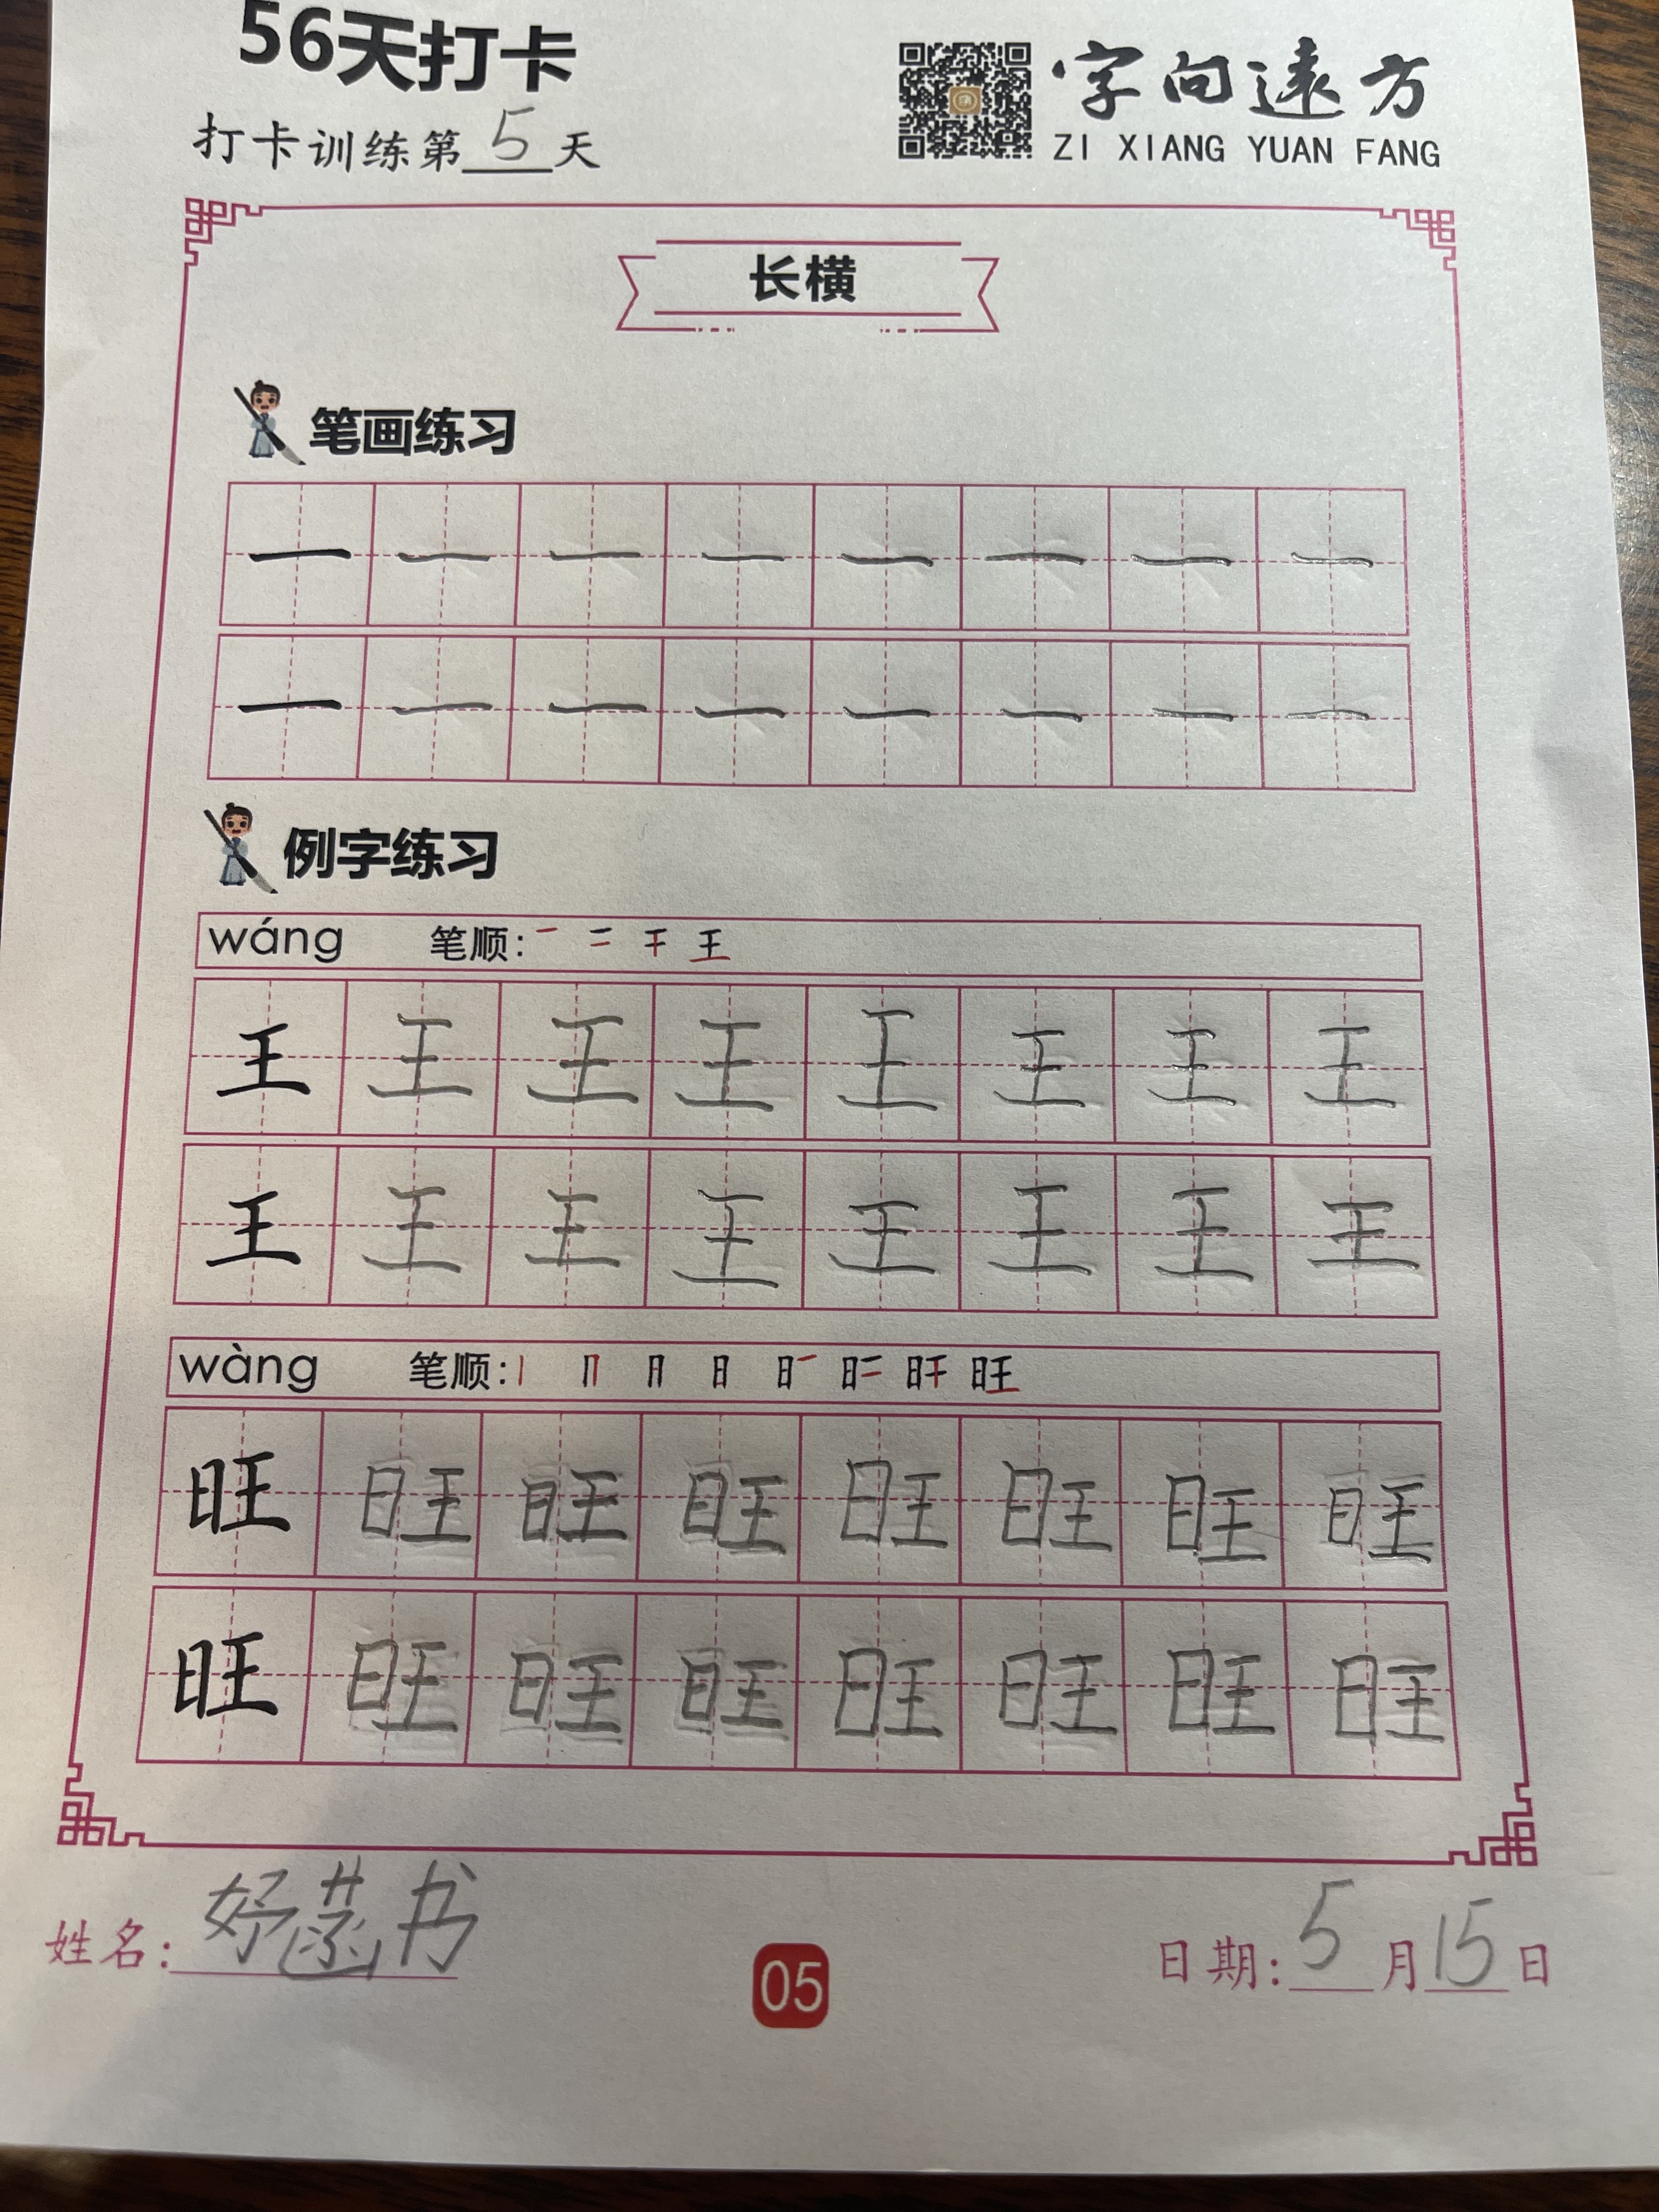 56天打卡
字向遠方
打卡训练第5天
ZI XIANG YUAN FANG
长横
笔画练习
一 一 一 一 一 一 一 一
一 一 一 一 一 一 一 一
例字练习
wáng 笔顺: 一 二 干 王
王 王 王 王 王 王 王 王
王 王 王 王 王 王 王 王
wàng 笔顺: 丨 冂 日 日 旺
旺 旺 旺 旺 旺 旺 旺 旺
旺 旺 旺 旺 旺 旺 旺 旺
姓名: 妤 书
05
日期: 5月15日